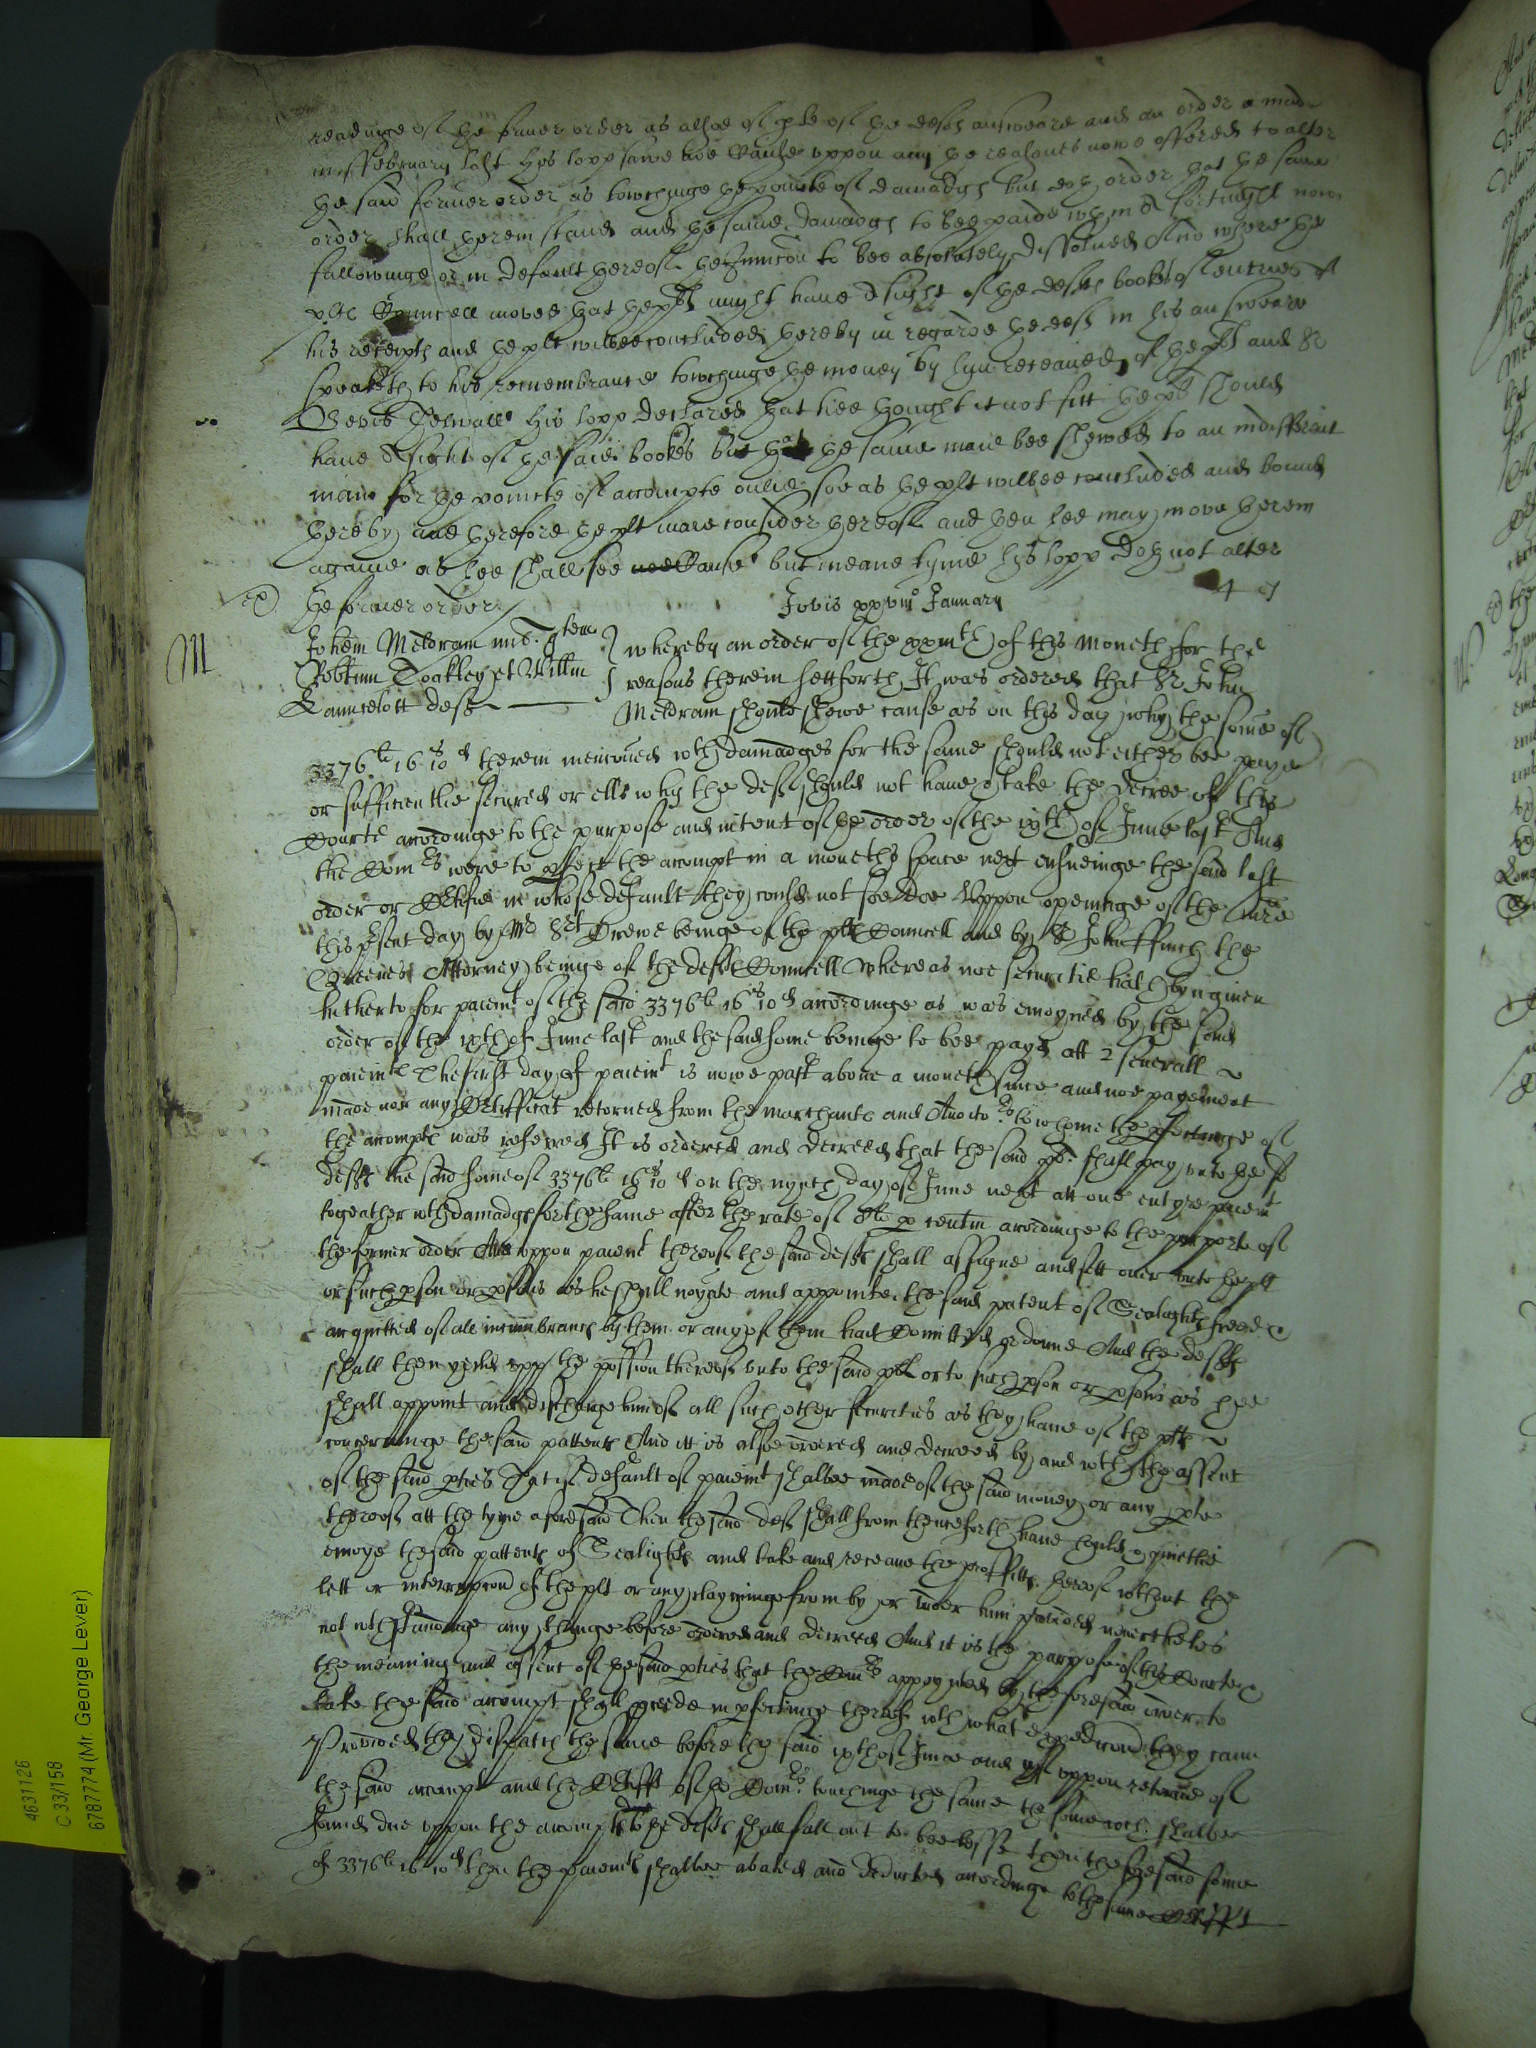 readinge of the former order as alsoe of pte of the defts answeare and an order made
in ffebruary last his lopp sawe noe Cause uppon any the reasons nowe offered to alter
the said former order as towchinge the pointe of damadgs but doth order that the same
order shall therein stand and the same damadgs to bee paide wthin A fortnight nowe
followinge or in default thereof the Iniuncon to bee absolutely dissolued And where the
plts Councell moved that the plt might haue A sight of the defts bookes of entries of
his receipts and the plt wilbee concluded thereby in regarde the deft in his answeare
speaketh to his remembrance towchinge the money by him receaued of the plt and Sr
Bevis Thelwall his lopp declared that hee thought it not fitt the plt should
haue A sight of the said bookes but that the same maie bee shewed to an indifferent
man for the pointe of accompte onlie soe as the plt wilbee concluded and bound
thereby and therefore the plt maie consider thereof and then hee may move herein
againe as hee shall see Cause but meane tyme his lopp doth not alter
the former order
Jovis xxviii Januarii
M
Johem Meldram mil. quem
Robtum Tockley et Willm
Launcelott defts
whereby an order of the xxiiith of this moneth for the
reasons therein sett forth It was ordered that Sr John
Meldram should shewe cause as on this day why the some of
3376li 16s 10d therein mencioned wth damadges for the same should not either bee payd
or sufficientlie secured or ells why the defts should not haue & take the decree of this
Courte accordinge to the purpose and intent of the order of the ixth of June last And
the Comrs were to pfect the accompt in a moneths space next ensueinge the said last
order or Certifie in whose default they could not soe doe Uppon openinge of the mre
this psent day by Mr Srt Drewe beinge of the plts Councell and by Sr John ffinch the
Queenes Attorney beinge of the defts Councell whereas noe securitie hath byn given
hitherto for paiemt of the said 3376li 16s 10d accordinge as was enioyned by the said
order of the ixth of June last and the said some beinge to bee payd att 2 severall
paiemts The first day of paiemt is nowe past above a moneth since and noe payement
made nor any Certifficat retorned from the marchants and Auditors to whome the pfectinge of
the accompts was referred It is ordered and decreed that the said plt. shall pay unto the sd
defts the said some of 3376li 16s 10d on the nynth day of June next att one entyre paiemt
togeather wth damadgs for the same after the rate of 8li p centm accordinge to the purporte of
the former order And uppon paiemt thereof the said defts shall assigne and sett over unto the plt
or such pson or psons as he shall noiate and appointe, the said patent of Sealights freed &
acquitted of all incumbrancs by them or any of them had Comitted or donne And the defts
shall then yeild upp the possion thereof unto the said plt or to such pson or psons as hee
shall appoint and discharge him of all such other securities as they haue of the plts
concerninge the said pattents And itt is alsoe ordered and decreed by and wth the assent
of the said pties That if default of paiemt shalbee made of the said money or any pte
thereof att the tyme aforesaid Then the said defts shall from thenceforth haue hould & quietlie
enioye the said pattents of Sealights and take and receaue the proffitts thereof without the
lett or interrupcon of the plt or any clayminge from by or under him
notwthstandinge any thinge before ordered and decreed And it is the purpose of this Courte &
the meaninge and assent of the said pties that the Comrs appoynted by the foresaid order to
take the said accompt shall pceede in pfectinge thereof wth what expedicon they cann
Provided they dispatch the same before the said ixth of June and yf uppon retorne of
the said accompt and the Certifft of the Comrs touchinge the same the some wch shalbee
found due uppon the accompt to the defts shall fall out to bee lesse then the foresaid some
of 3376li 16s 10d then the paiemt shalbee abated and deducted accordinge to the same Certifft
4631126
C 33/158
6787774 (Mr. George Lever)